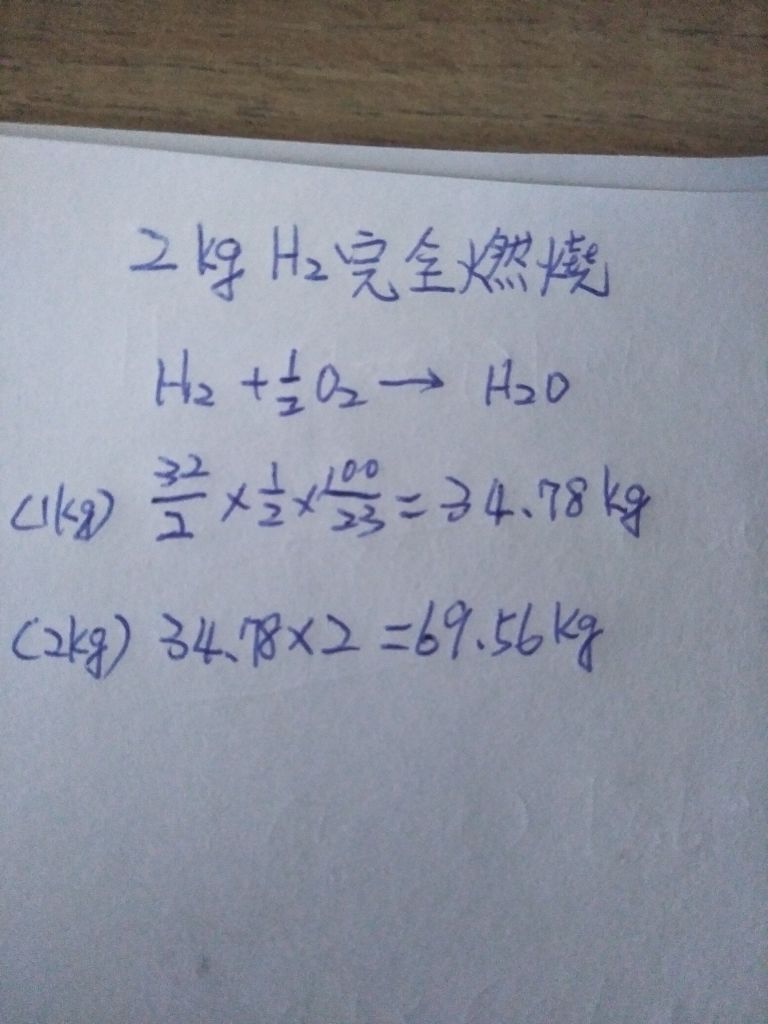 2kg H₂完全燃燒
H₂ + 1/2 O₂ → H₂O
(1kg) 32/2 × 1/2 × 100/23 = 34.78kg
(2kg) 34.78×2 = 69.56kg